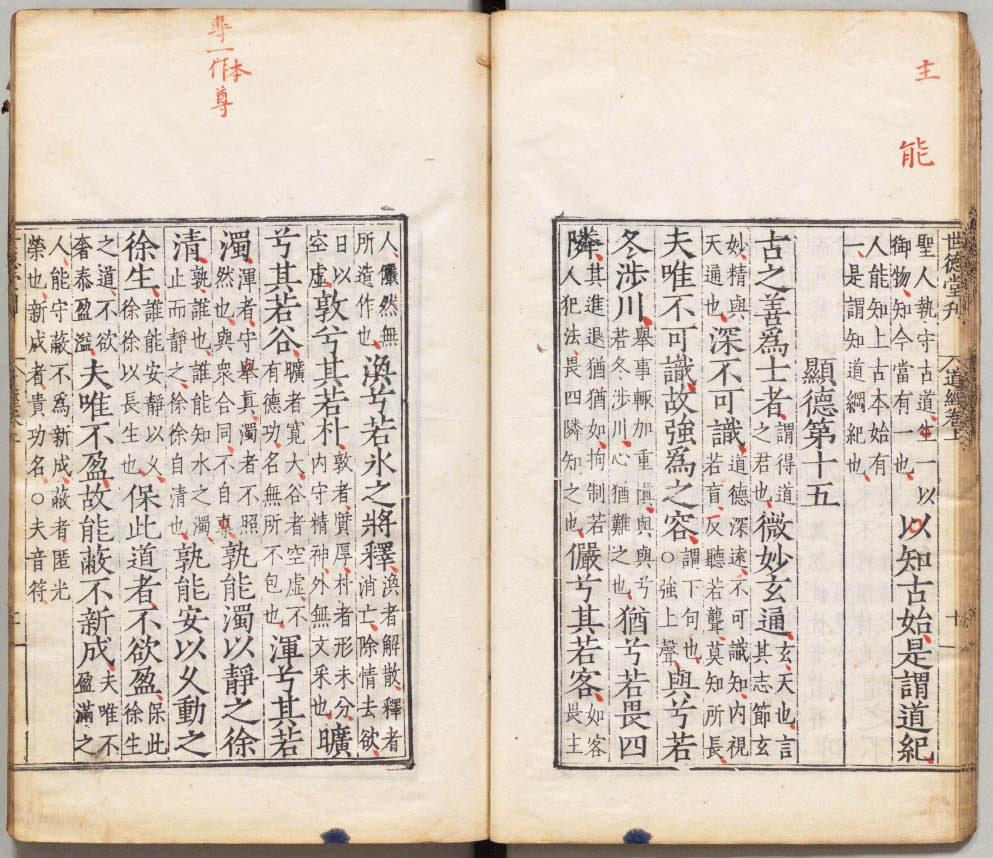 主
能
世德堂刋 道經卷上 十
聖人執守古道生一以御物知今當有一也以知古始是謂道紀
人能知上古本始有一是謂知道綱紀也
顯德第十五
古之善爲士者謂得道之君也微妙玄通玄天也言其志節玄
妙精與天通也深不可識道德深遠不可識知內視若盲反聽若聾莫知所長
夫唯不可識故強爲之容謂下句也○強上聲與兮若
冬涉川舉事輒加重愼與與兮若冬涉川心猶難之也猶兮若畏四
隣其進退猶猶如拘制若人犯法畏四隣知之也儼兮其若客如客畏主
專一本作尊
人儼然無所造作也渙兮若氷之將釋渙者解散釋者消亡除情去欲
日以空虛敦兮其若朴敦者質厚朴者形未分內守精神外無文采也曠
兮其若谷曠者寬大谷者空虛不有德功名無所不包也渾兮其若
濁渾者守真濁者不照然也與衆合同不自專孰能濁以靜之徐
清孰誰也誰能知水之濁止而靜之徐徐自清也孰能安以久動之
徐生誰能安靜以久徐徐以長生也保此道者不欲盈保此徐生
之道不欲奢泰盈溢夫唯不盈故能蔽不新成夫唯不盈滿之
人能守蔽不爲新成蔽者匿光榮也新成者貴功名○夫音符